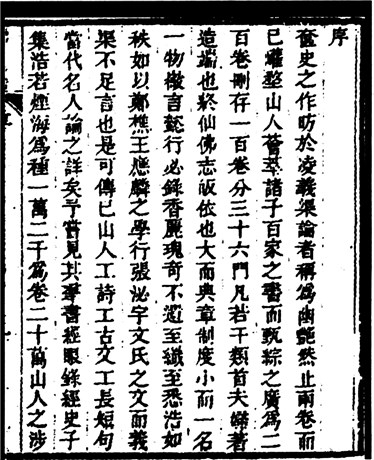 序
奩史之作昉於凌義渠論者稱為幽艷然止兩卷而
已蠟婺山人薈萃諸子百家之書而甄綜之廣為二
百卷刪存一百卷分三十六門凡若干類首夫婦著
造端也終仙佛志皈依也大而典章制度小而一名
一物徽言懿行必錄香麗瑰奇不遺至纖至悉浩如
秩如以鄭樵王應麟之學行張泌宇文氏之文而義
渠不足言也是可傳已山人工詩工古文工長短句
當代名人論之詳矣予嘗見其羣書經眼錄經史子
集浩若煙海為種一萬二千為卷二十萬山人之涉